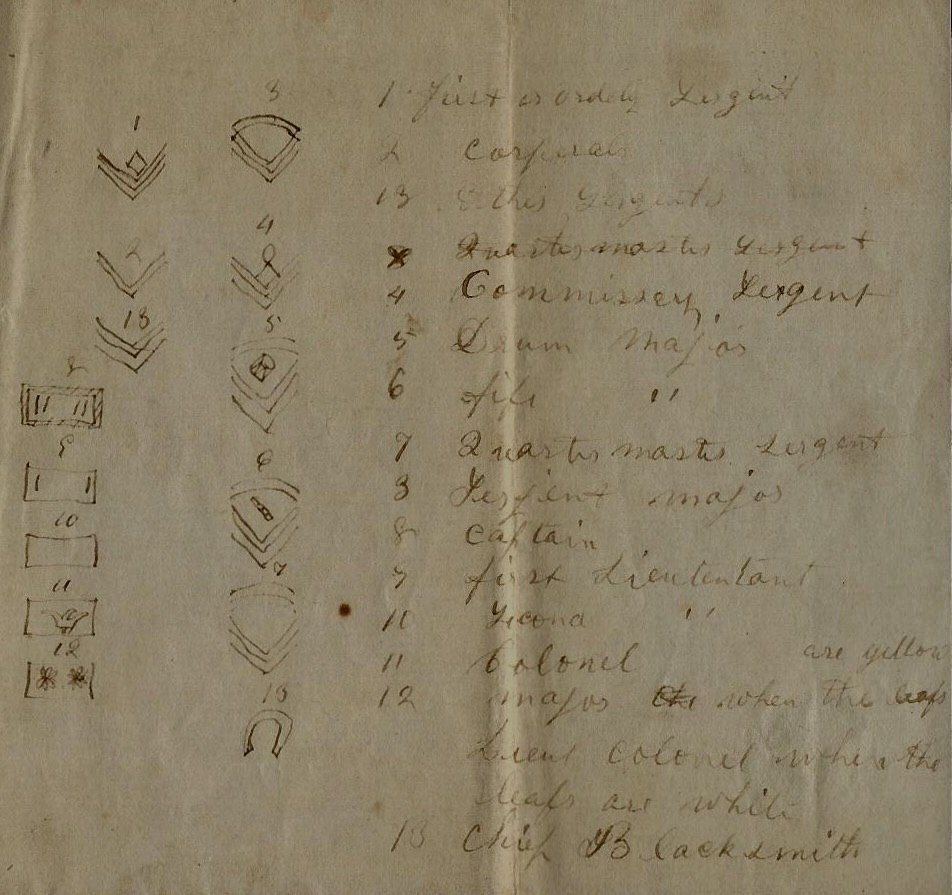 1 first or orderly Sergent
2 Corperals
13 other Sergents
Quarter master Sergent
4 Commissery Sergent
5 Drum major
6 fife "
7 Quarter master Sergent
3 Sergent major
8 Captain
9 first Lieutentant
10 Second "
11 Colonel
are yellow
12 major when the leafs
Lieut Colonel when the
leafs are white
13 Chief Blacksmith
1
2
13
8
9
10
11
12
3
4
5
6
7
13